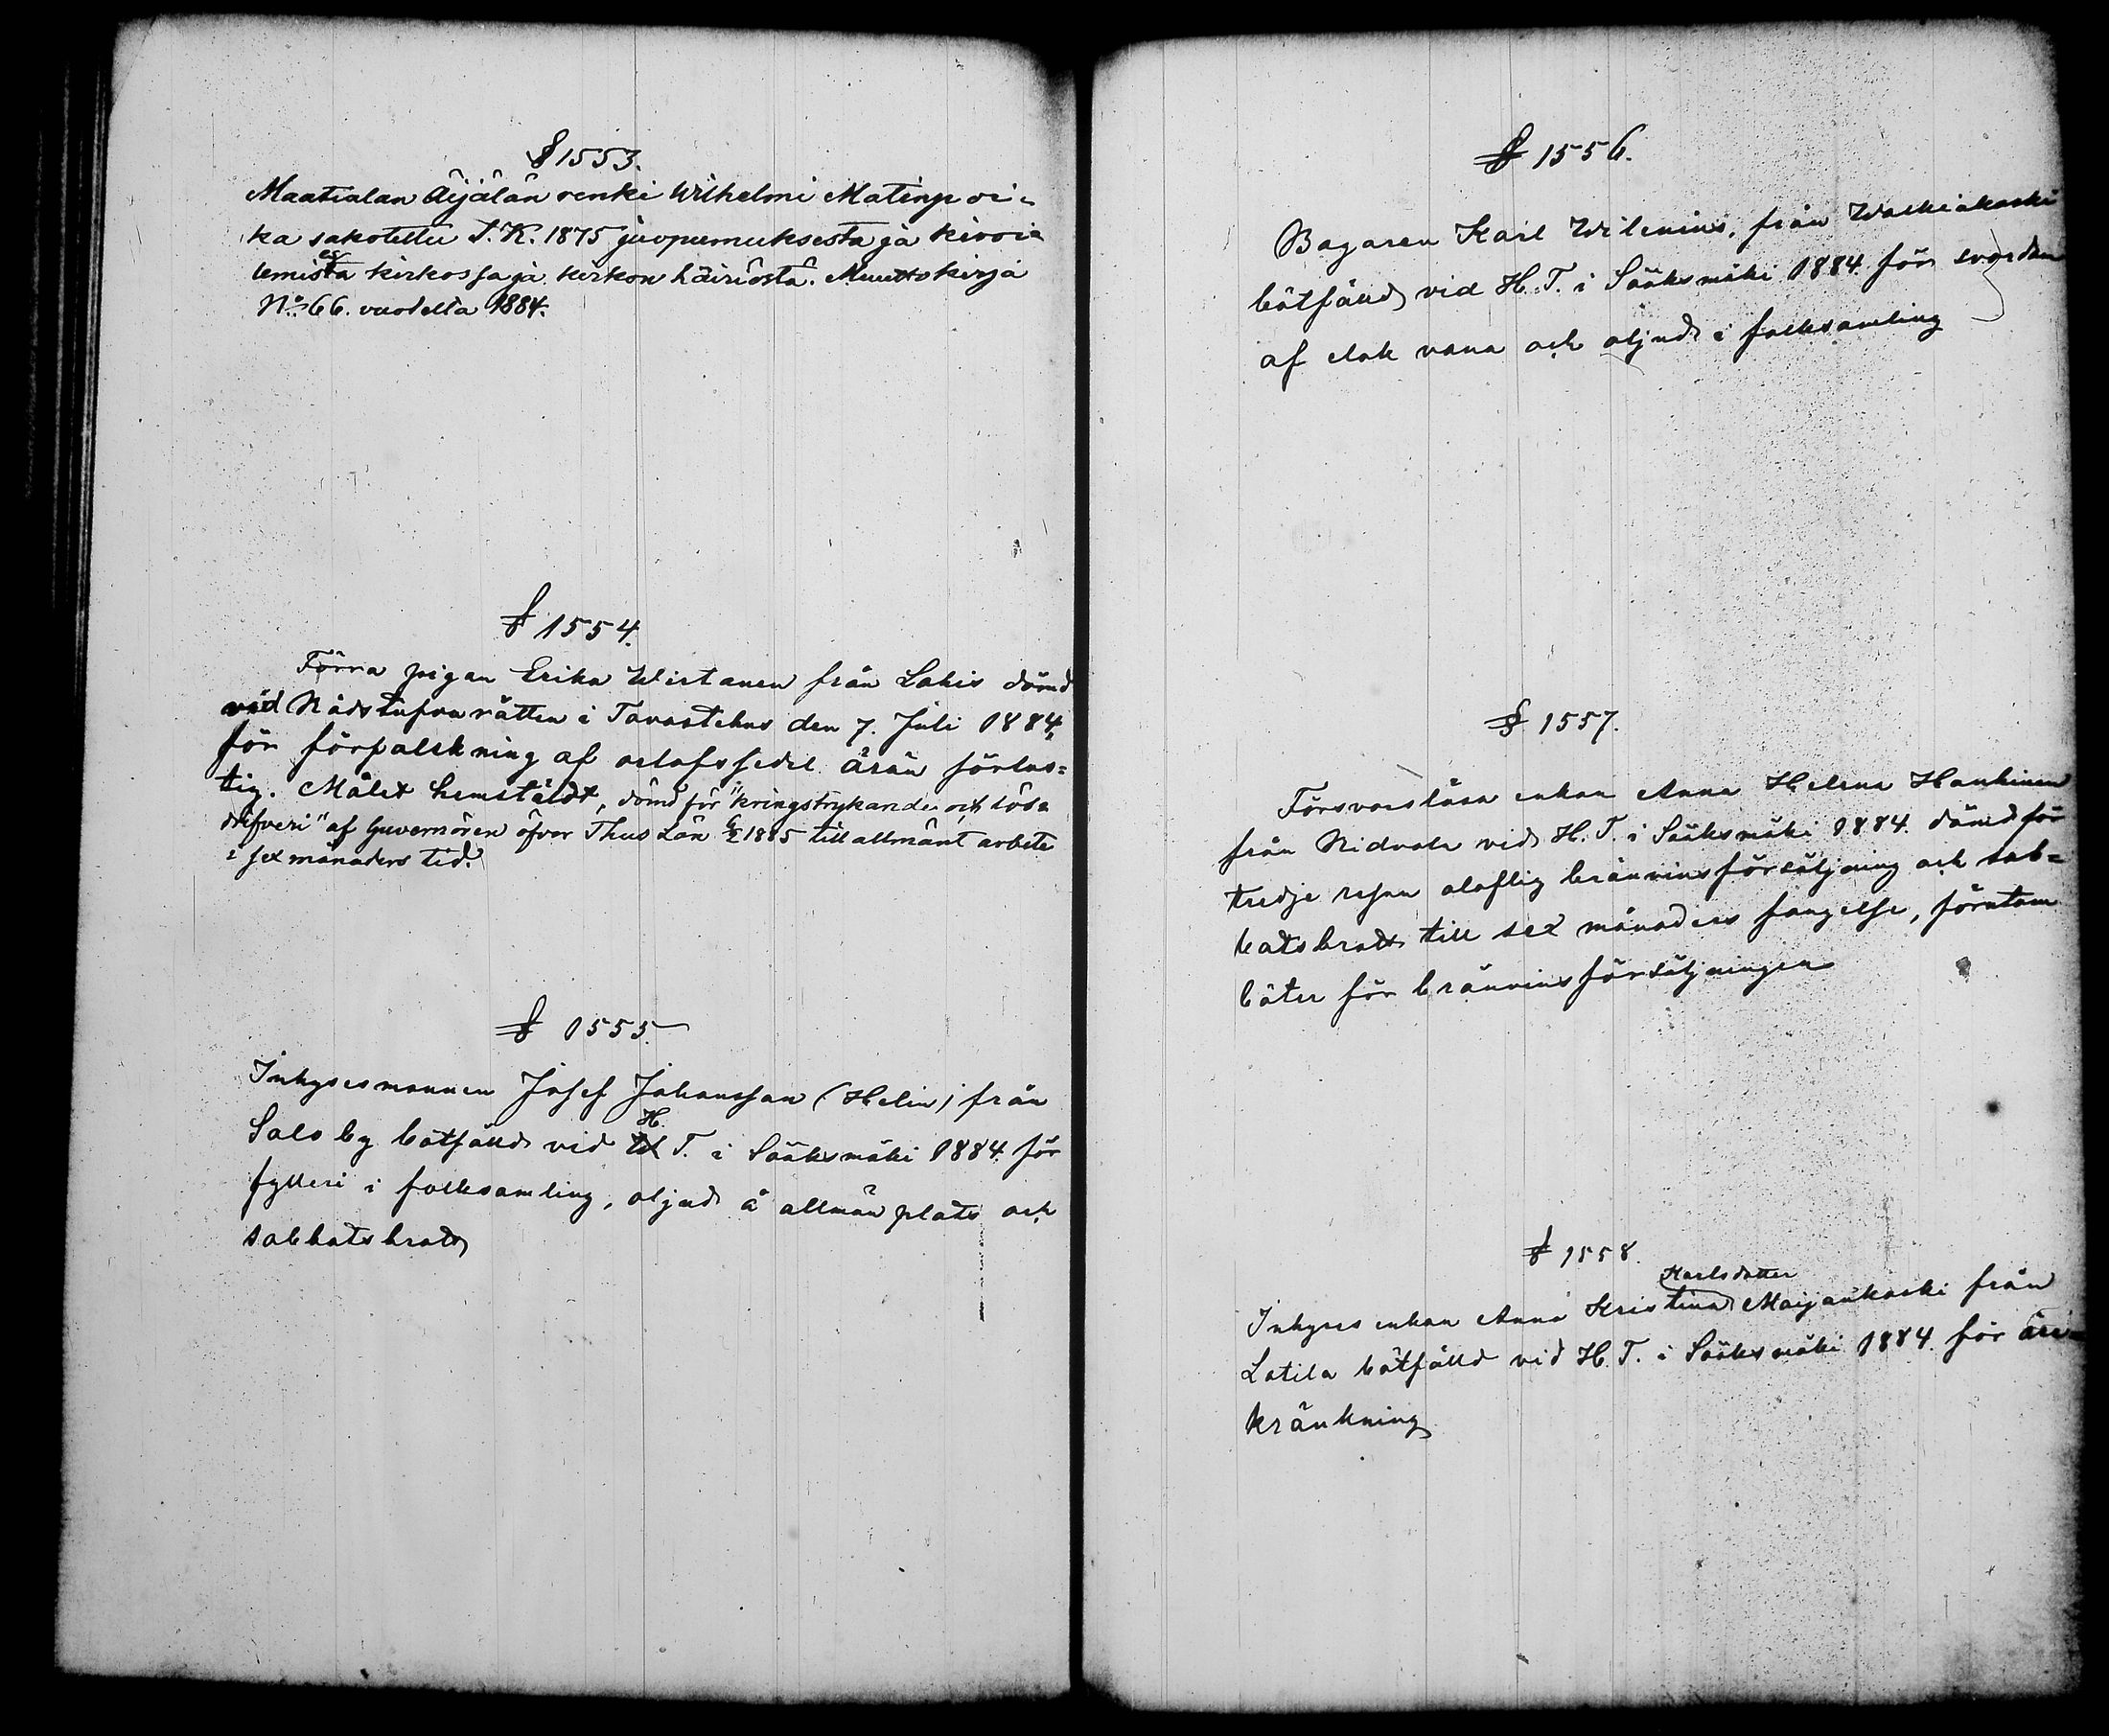 § 1553.
Maatialan Äijälän renki Wilhelmi Matinp oi-
ka sakotettu S. K. 1875 juopumuksesta ja kiroi-
lemisesta kirkossa ja kirkon häiriöstä. Muuttokirja
No 66. vuodelta 1884.
§ 1554.
Förra pigan Erika Wirtanen från Lahis dömd
vid Rådstufvurätten i Tavastehus den 7. Juli 1884,
för förfalskning af orlofssedel äran förlus=
tig. Målet hemstäldt, dömd för "kringstrykande och lösa
drifveri" af Guvernören öfver Thus Län 6/2 1885 till allmänt arbete
i sex månaders tid.
§ 1555.
Inhysesmannen Josef Johansson (Helin) från
Salo by bötfälld vid H. T. i Sääksmäki 1884 för
fylleri i folksamling, oljud å allmän plats och
sabbatsbrott
§ 1556.
Bagaren Karl Wilenius, från Walkiakoski
bötfälld vid H. T. i Sääksmäki 1884 för svordom
af elak vana och oljud i folksamling
§ 1557.
Försvarslösa enkan Anna Helena Hankinen
från Ridvala vid H. T. i Sääksmäki 1884 dömd för
tredje resan olaflig bränvinsförsäljning och sab=
batsbrott till sex månaders fängelse, förutom
böter för bränvinsförsäljningen
§ 1558.
Inhyses enkan Anna Kristina Karlsdotter Maijankoski från
Lotila bötfälld vid H. T. i Sääksmäki 1884 för äre=
kränkning